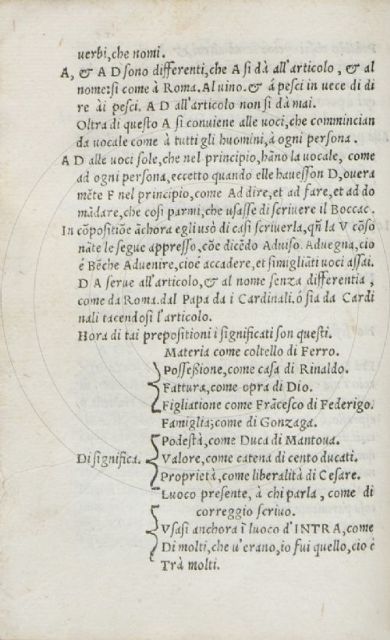 uerbi, che nomi.
A, & A D sono differenti, che A si dà all'articolo, & al
nome: si come à Roma. Al uino. & á pesci in uece di di
re ài pesci. A D all'articolo non si dà mai.
Oltra di questo A si conuiene alle uoci, che commincian
da uocale come à tutti gli huomini, à ogni persona.
A D alle uoci sole, che nel principio, hãno la uocale, come
ad ogni persona, eccetto quando elle hauesson D, ouera
mẽte F nel principio, come Ad dire, et ad fare, et ad do
mãdare, che cosi parmi, che usasse di scriuere il Boccac.
In cõpositiõe ãchora egli usò di casi scriuerla, qñ la V cõso
nãte le segue appresso, cõe dicẽdo Aduiso. Aduegna, cio
é Bẽche Aduenire, cioé accadere, et simigliãti uoci assai.
D A serue all'articolo, & al nome senza differentia,
come da Roma. dal Papa da i Cardinali. ó sia da Cardi
nali tacendosi l'articolo.
Hora di tai prepositioni i significati son questi.
Materia come coltello di Ferro.
Possessione, come casa di Rinaldo.
Fattura, come opra di Dio.
Figliatione come Frãcesco di Federigo.
Famiglia; come di Gonzaga.
Podestà, come Duca di Mantoua.
Di significa. Valore, come catena di cento ducati.
Proprietà, come liberalità di Cesare.
Luoco presente, à chi parla, come di
correggio scriuo.
Vsasi anchora ĩ luoco d'INTRA, come
Di molti, che u'erano, io fui quello, cio é
Trà molti.